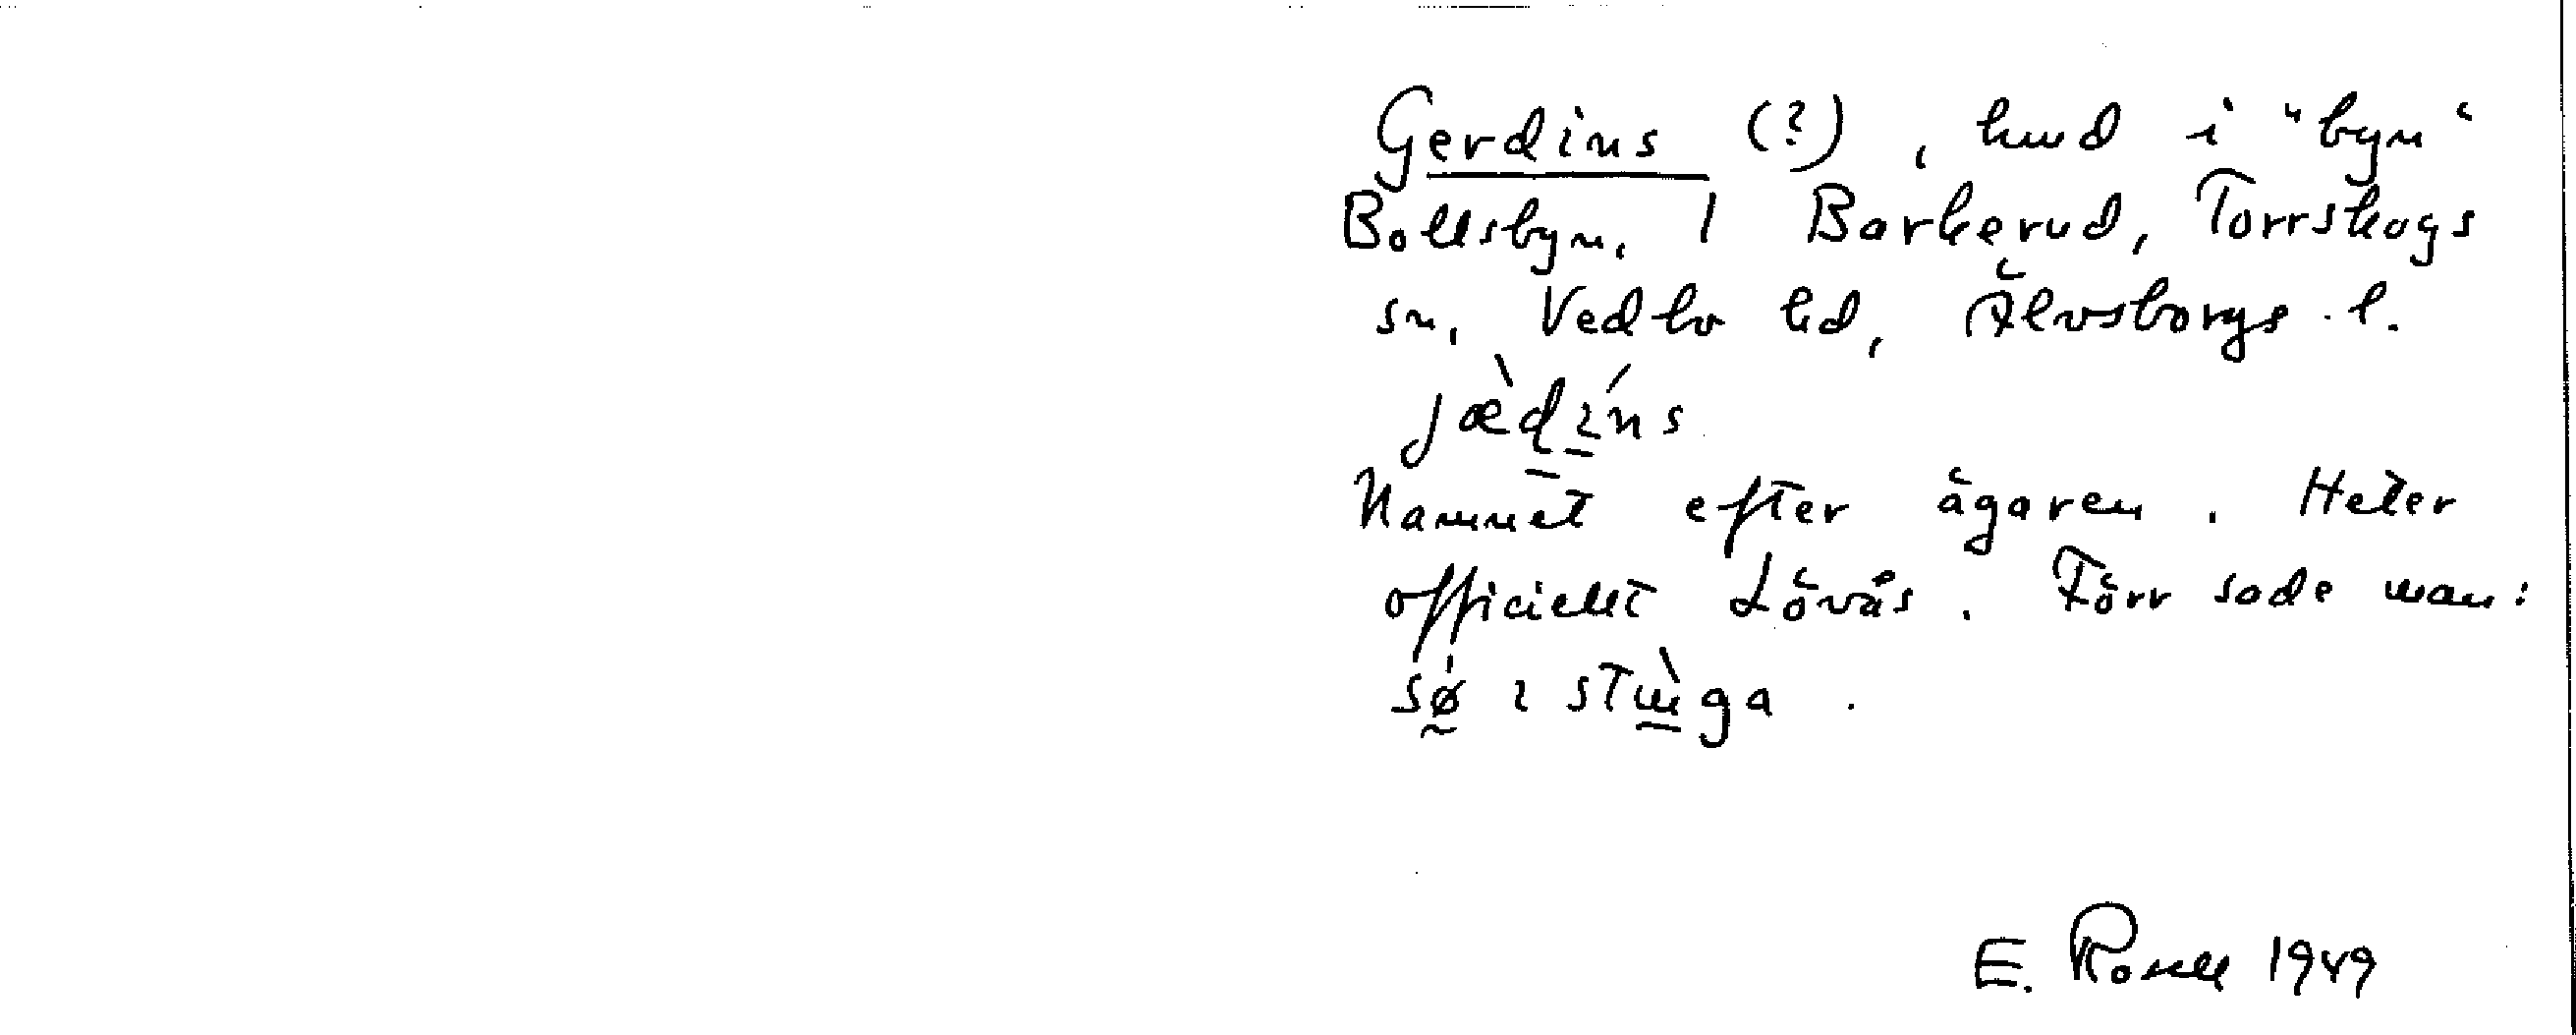 Gerdins (?), hmd i "byn"
Bollsbyn, 1 Barkerud, Torrskogs
sn, Vedbo hd, Älvsborgs l.
jæ̀díns
Namnet efter ägaren. Heter
officiellt Lövås. Förr sade man:
sǿ ı stɯ̀ga.
E. Rosell 1949